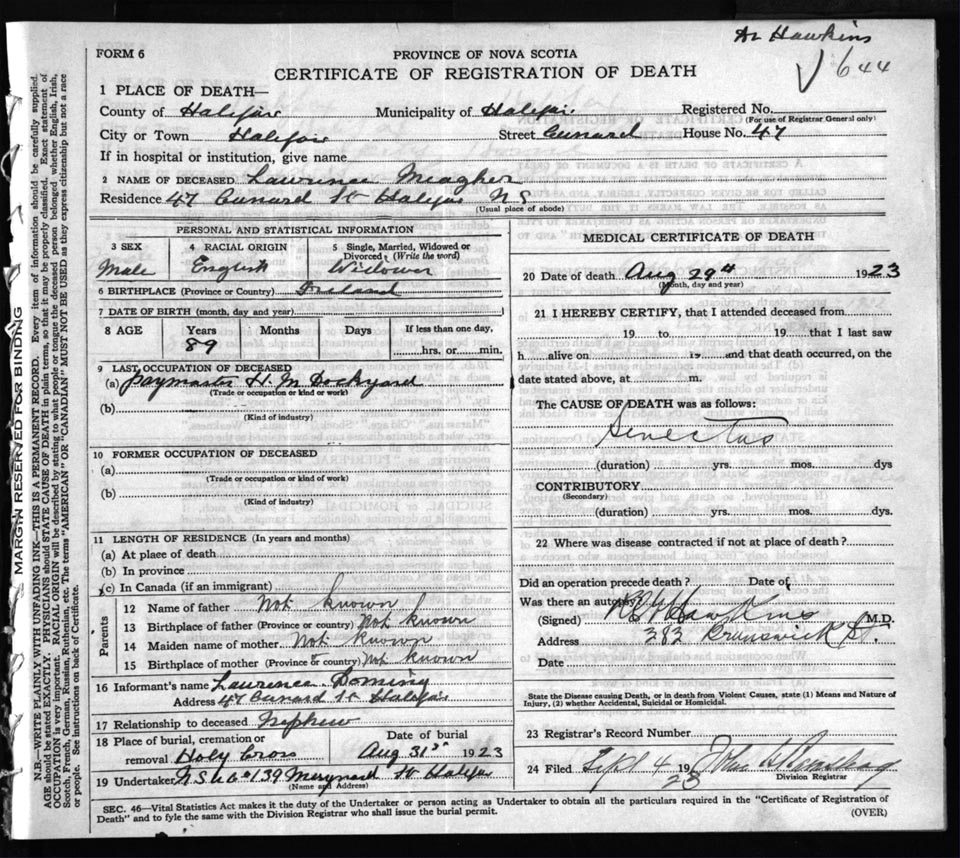 Dr Hawkins
FORM 6
PROVINCE OF NOVA SCOTIA
644
CERTIFICATE OF REGISTRATION OF DEATH
1 PLACE OF DEATH—
County of Halifax Municipality of Halifax Registered No.
(For use of Registrar General only)
City or Town Halifax Street Cunard House No. 47
If in hospital or institution, give name
2 NAME OF DECEASED Lawrence Meagher
Residence 47 Cunard St Halifax N S
(Usual place of abode)
PERSONAL AND STATISTICAL INFORMATION
3 SEX 4 RACIAL ORIGIN 5 Single, Married, Widowed or Divorced (Write the word)
Male English Widower
6 BIRTHPLACE (Province or Country) Ireland
7 DATE OF BIRTH (month, day and year)
8 AGE Years Months Days If less than one day,
89 hrs. or min.
9 LAST OCCUPATION OF DECEASED
(a) Paymaster H. M Dockyard
(Trade or occupation or kind or work)
(b)
(Kind of industry)
10 FORMER OCCUPATION OF DECEASED
(a)
(Trade or occupation or kind of work)
(b)
(Kind of industry)
11 LENGTH OF RESIDENCE (In years and months)
(a) At place of death
(b) In province
(c) In Canada (if an immigrant)
Parents
12 Name of father Not known
13 Birthplace of father (Province or country) Not known
14 Maiden name of mother Not known
15 Birthplace of mother (Province or country) Not known
16 Informant's name Laurence
Address 47 Cunard St Halifax
17 Relationship to deceased Nephew
18 Place of burial, cremation or Date of burial
removal Holy Cross Aug 31st 1923
19 Undertaker N S U Co 139 Maynard St Halifax
(Name and Address)
MEDICAL CERTIFICATE OF DEATH
20 Date of death Aug 29th 1923
(Month, day and year)
21 I HEREBY CERTIFY, that I attended deceased from
19 to 19 that I last saw
h alive on 19 and that death occurred, on the
date stated above, at m.
The CAUSE OF DEATH was as follows:
Senectus
(duration) yrs. mos. dys
CONTRIBUTORY
(Secondary)
(duration) yrs. mos. dys.
22 Where was disease contracted if not at place of death?
Did an operation precede death? Date of
Was there an autopsy?
(Signed) Hawkins M.D.
Address 282 Brunswick St.
Date
State the Disease causing Death, or in death from Violent Causes, state (1) Means and Nature of
Injury, (2) whether Accidental, Suicidal or Homicidal.
23 Registrar's Record Number
24 Filed Sept 4 1923 John
Division Registrar
SEC. 46—Vital Statistics Act makes it the duty of the Undertaker or person acting as Undertaker to obtain all the particulars required in the "Certificate of Registration of
Death" and to fyle the same with the Division Registrar who shall issue the burial permit.
(OVER)
MARGIN RESERVED FOR BINDING
N.B.—WRITE PLAINLY WITH UNFADING INK—THIS IS A PERMANENT RECORD. Every item of information should be carefully supplied.
AGE should be stated EXACTLY. PHYSICIANS should STATE CAUSE OF DEATH in plain terms, so that it may be properly classified. Exact statement of
OCCUPATION is very important. RACIAL ORIGIN will be described by stating to what people or tongue the deceased person belonged, whether English, Irish,
Scotch, French, German, Russian, Ruthenian, etc. The terms "AMERICAN" OR "CANADIAN" MUST NOT BE USED as they express citizenship but not a race
or people. See instructions on back of Certificate.